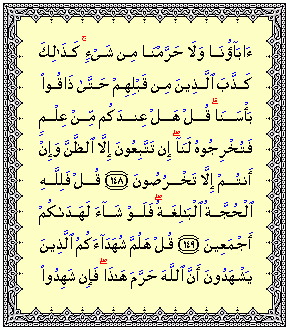 ءَابَآؤُنَا وَلَا حَرَّمْنَا مِن شَىْءٍ ۚ كَذَٰلِكَ
كَذَّبَ ٱلَّذِينَ مِن قَبْلِهِمْ حَتَّىٰ ذَاقُوا۟
بَأْسَنَا ۗ قُلْ هَلْ عِندَكُم مِّنْ عِلْمٍ
فَتُخْرِجُوهُ لَنَآ ۖ إِن تَتَّبِعُونَ إِلَّا ٱلظَّنَّ وَإِنْ
أَنتُمْ إِلَّا تَخْرُصُونَ ١٤٨ قُلْ فَلِلَّهِ
ٱلْحُجَّةُ ٱلْبَٰلِغَةُ ۖ فَلَوْ شَآءَ لَهَدَىٰكُمْ
أَجْمَعِينَ ١٤٩ قُلْ هَلُمَّ شُهَدَآءَكُمُ ٱلَّذِينَ
يَشْهَدُونَ أَنَّ ٱللَّهَ حَرَّمَ هَٰذَا ۖ فَإِن شَهِدُوا۟